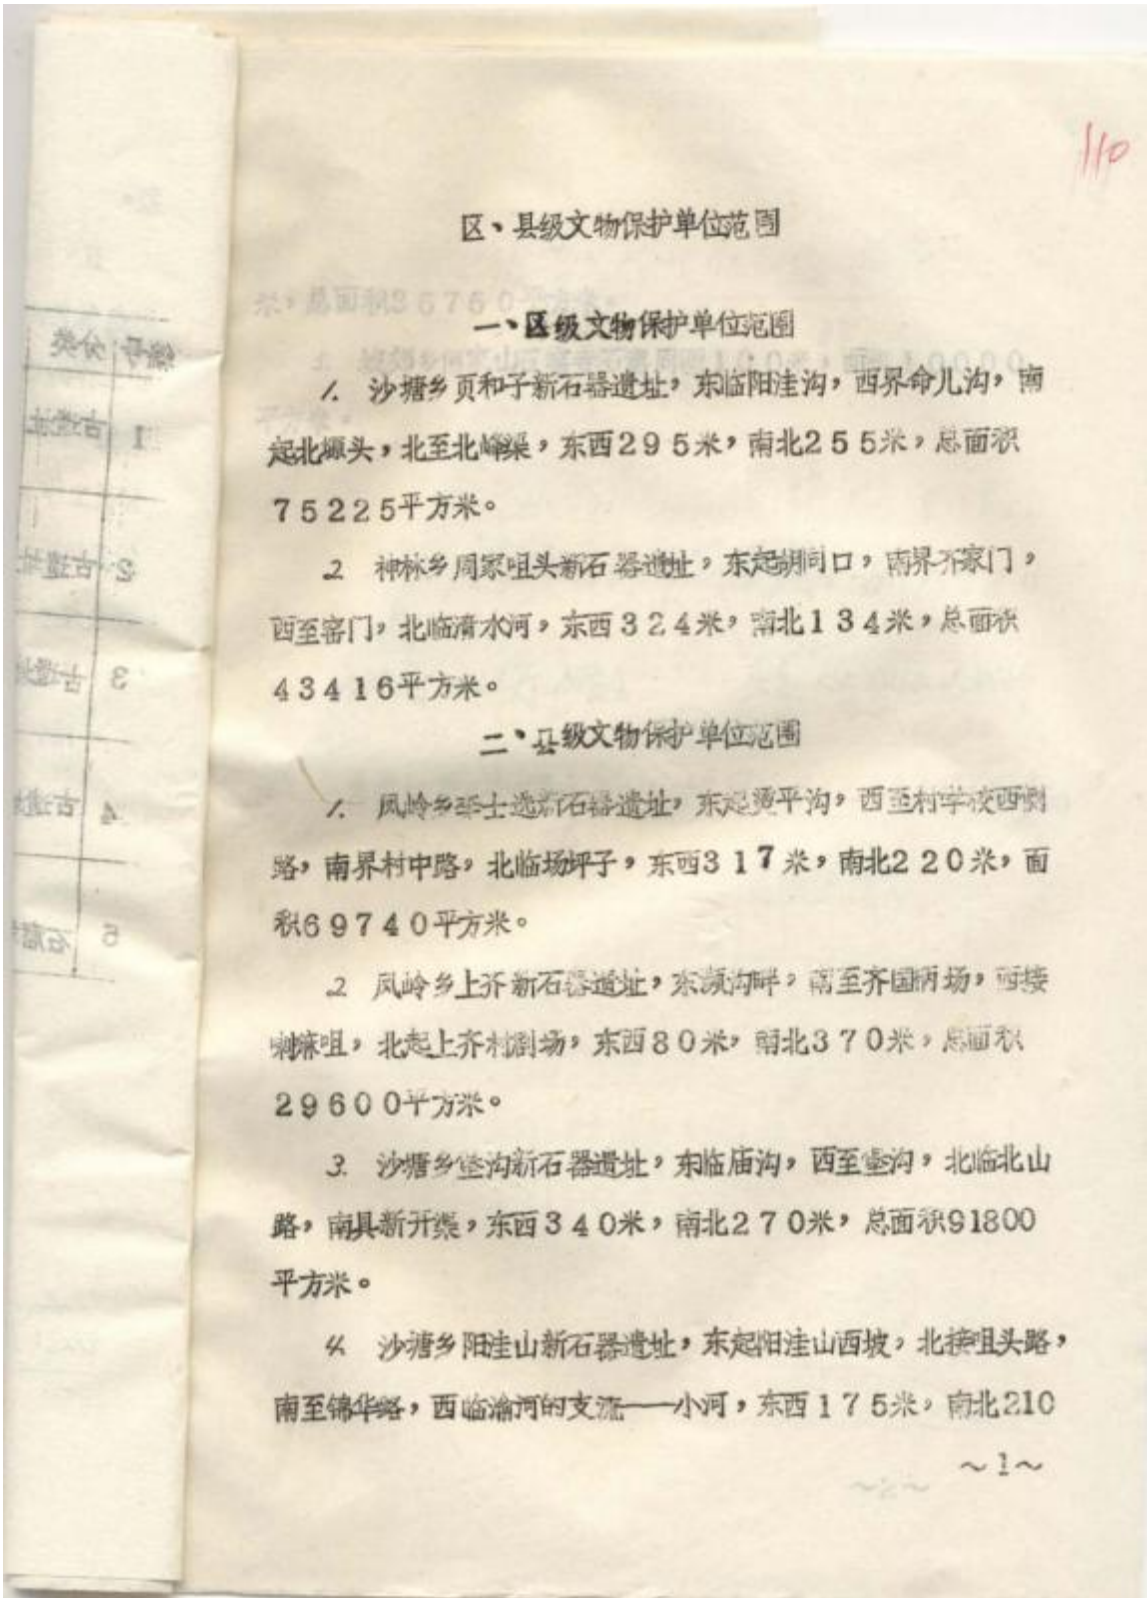 110
区、县级文物保护单位范围
一、区级文物保护单位范围
1. 沙塘乡页和子新石器遗址，东临阳洼沟，西界命儿沟，南
起北塬头，北至北峰渠，东西295米，南北255米，总面积
75225平方米。
2 神林乡周家咀头新石器遗址，东起胡同口，南界齐家门，
西至窑门，北临清水河，东西324米，南北134米，总面积
43416平方米。
二、县级文物保护单位范围
1. 凤岭乡李士选新石器遗址，东起烫平沟，西至村学校西侧
路，南界村中路，北临场坪子，东西317米，南北220米，面
积69740平方米。
2 凤岭乡上齐新石器遗址，东濒沟畔，南至齐国丙场，西接
喇嘛咀，北起上齐村剧场，东西80米，南北370米，总面积
29600平方米。
3. 沙塘乡堡沟新石器遗址，东临庙沟，西至堡沟，北临北山
路，南具新开渠，东西340米，南北270米，总面积91800
平方米。
4. 沙塘乡阳洼山新石器遗址，东起阳洼山西坡，北接咀头路，
南至锦华路，西临渝河的支流——小河，东西175米，南北210
～1～
编号 分类
1 古遗址
2 古遗址
3 古遗址
4 古遗
5 石